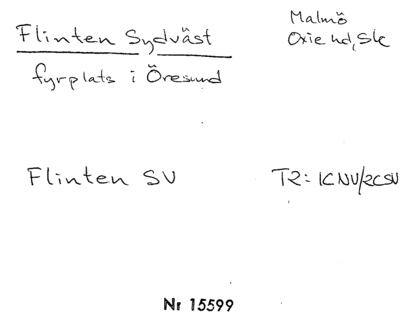 Flinten Sydväst
Malmö
Oxie hd, Sk
fyrplats i Öresund
Flinten SV
T2: 1CNV/2CSV
Nr 15599